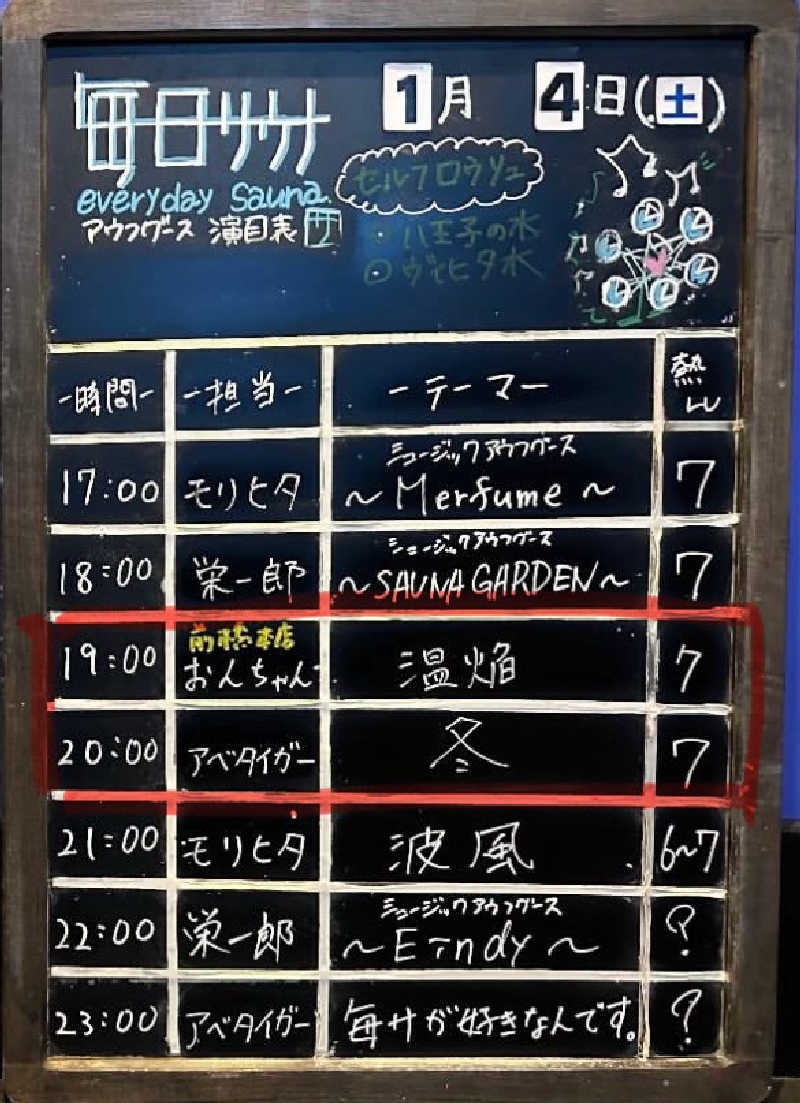 毎日サウナ
1月 4日(土)
everyday Sauna
アウフグース 演目表
セルフロウリュ
八王子の水
ヴヒタ水
-時間- -担当- -テーマー 熱
17:00 モリヒタ ミュージックアウフグース ～Merfume～ 7
18:00 栄一郎 ミュージックアウフグース ～SAUNA GARDEN～ 7
19:00 前橋本店 おんちゃん 温焔 7
20:00 アベタイガー 冬 7
21:00 モリヒタ 波風 6～7
22:00 栄一郎 ミュージックアウフグース ?
23:00 アベタイガー 毎サが好きなんです。 ?